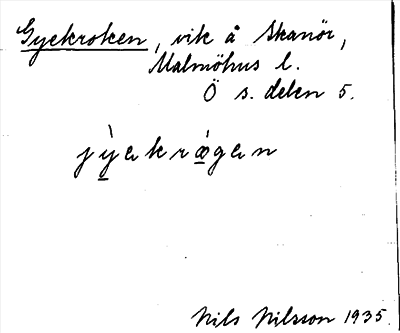 Gyekroken, vik å Skanör,
Malmöhus l.
Ö s. delen 5.
jỳekrǫgen
Nils Nilsson 1935.